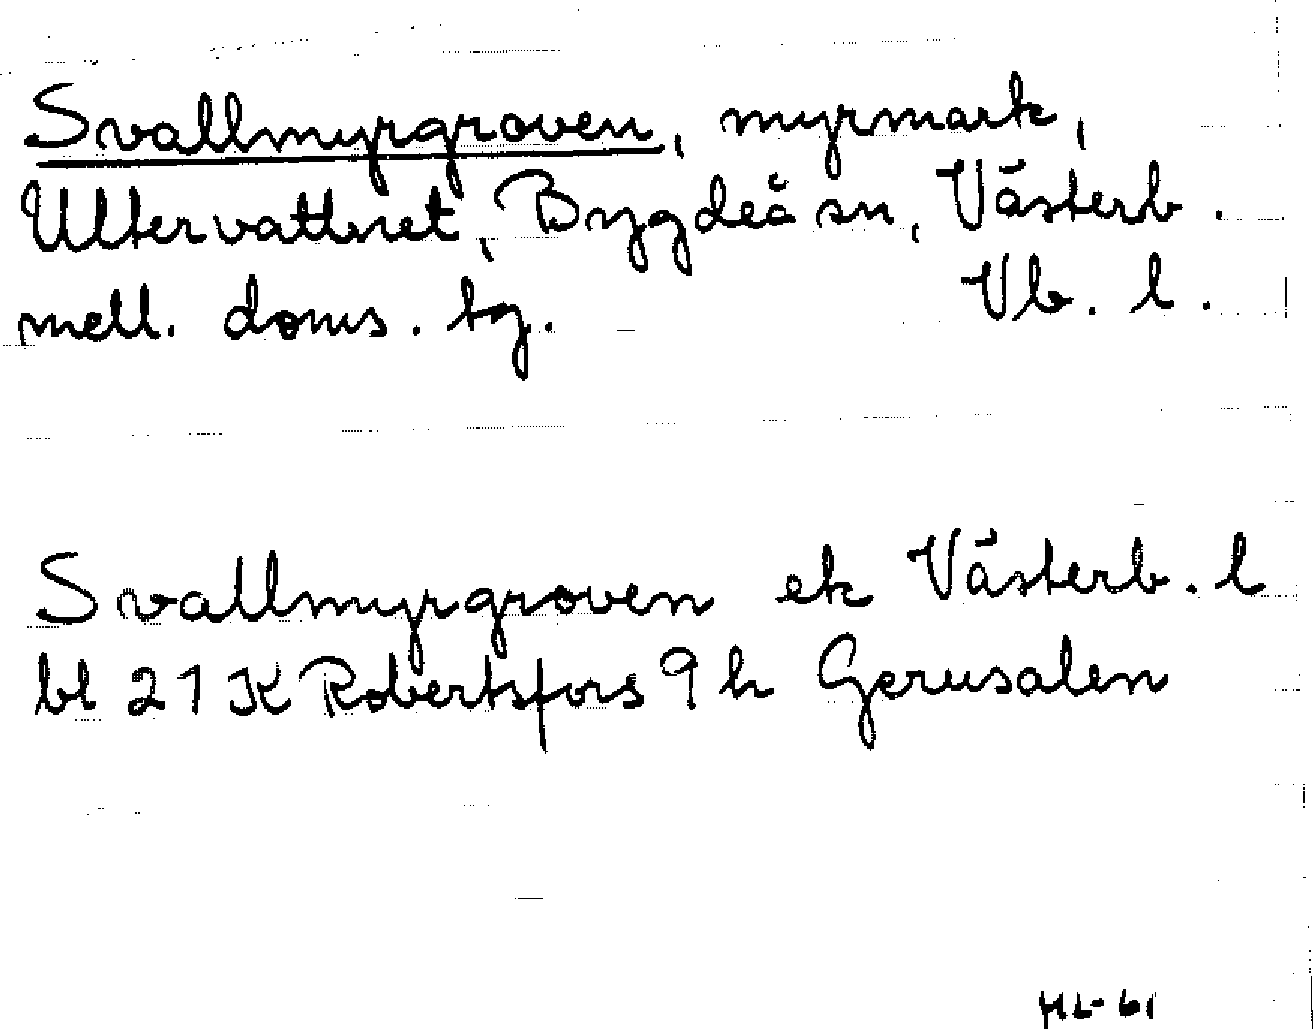 Svallmyrgroven, myrmark,
Ultervattnet, Bygdeå sn, Västerb.
mell. doms. tg. Vb. l.
Svallmyrgroven ek Västerb. l
bl 21 K Robertsfors 9 h Gerusalen
ML-61